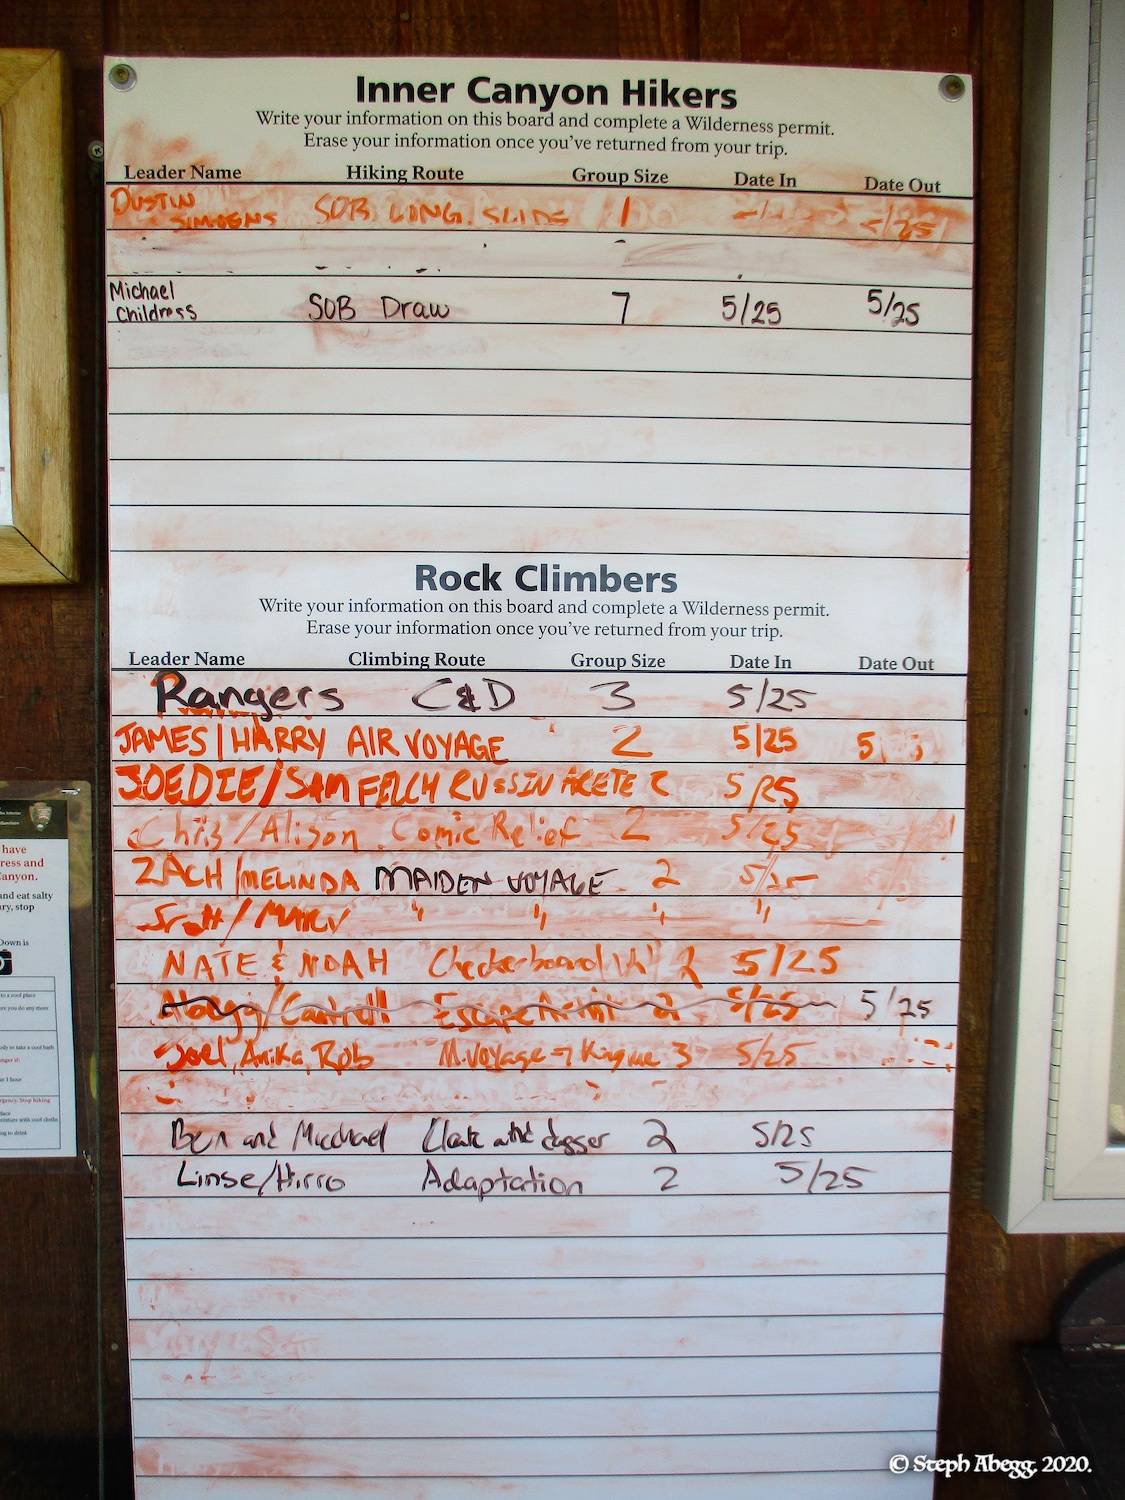 Inner Canyon Hikers
Write your information on this board and complete a Wilderness permit.
Erase your information once you've returned from your trip.
Leader Name Hiking Route Group Size Date In Date Out
DUSTIN SOB LONG. SLIDE 1 /25
Michael
Childress SOB Draw 7 5/25 5/25
Rock Climbers
Write your information on this board and complete a Wilderness permit.
Erase your information once you've returned from your trip.
Leader Name Climbing Route Group Size Date In Date Out
Rangers C&D 3 5/25
JAMES/HARRY AIR VOYAGE 2 5/25 5
JOEDIE/SAM FELCH RUSSIN ARETE 2 5/25
Chris/Alison Comic Relief 2 5/25
ZACH/MELINDA MAIDEN VOYAGE 2 5/25
Scott/ " " " "
NATE & NOAH Checkerboard 2 5/25
Escape Artist 2 5/25 5/25
Joel, Anika, Rob M. Voyage → 3 5/25
Ben and Cloak and dagger 2 5/25
Linse/Hirro Adaptation 2 5/25
have
ress and
Canyon.
and eat salty
ry, stop
Down is
to a cool place
© Steph Abegg. 2020.